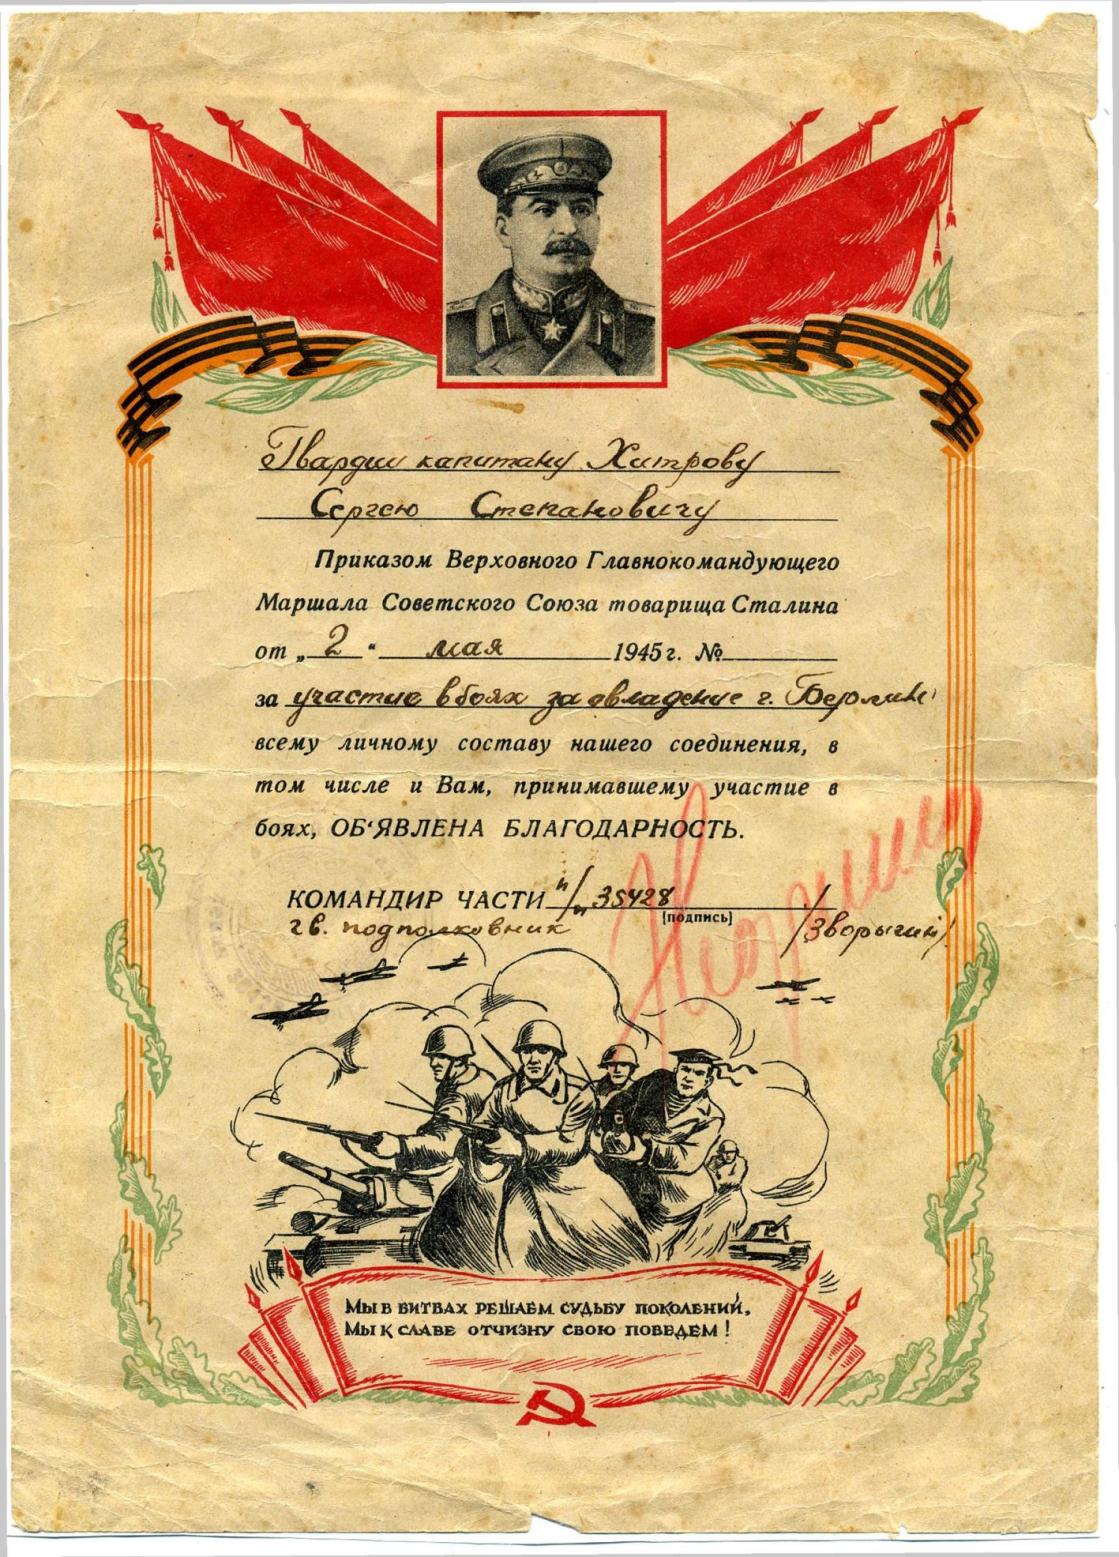 Гвардии капитану Хитрову
Сергею Степановичу
Приказом Верховного Главнокомандующего
Маршала Советского Союза товарища Сталина
от „ 2 “ мая 1945 г. №
за участие в боях за овладение г. Берлин
всему личному составу нашего соединения, в
том числе и Вам, принимавшему участие в
боях, ОБ‘ЯВЛЕНА БЛАГОДАРНОСТЬ.
КОМАНДИР ЧАСТИ п/п 35428
(подпись)
гв. подполковник /Зворыгин/
МЫ В БИТВАХ РЕШАЕМ СУДЬБУ ПОКОЛЕНИЙ,
МЫ К СЛАВЕ ОТЧИЗНУ СВОЮ ПОВЕДЕМ!